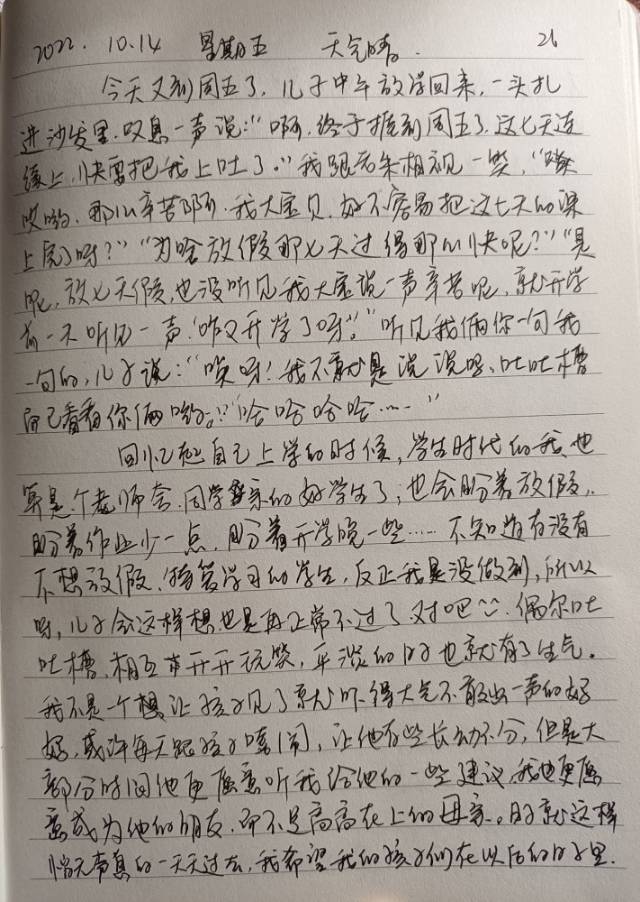 2022. 10.14 星期五 天气晴. 21
今天又到周五了, 儿子中午放学回来, 一头扎
进沙发里, 叹息一声说:“啊, 终于挨到周五了, 这七天连
续上, 快要把我上吐了。”我跟老朱相视一笑, “哎
哎哟, 那么辛苦啊, 我大宝贝, 好不容易把这七天的课
上完了呀?”“为啥放假那七天过得那么快呢?”“是
呢, 放七天假, 也没听见我大宝说一声辛苦呢, 就开学
前一天听见一声, 咋又开学了呀!”听见我俩你一句我
一句的, 儿子说:“哎呀! 我不就是说说嘛、吐吐槽
自己看看你俩哟。!”哈哈哈哈……”
回忆起自己上学的时候, 学生时代的我, 也
算是个老师舍、同学亲的好学生了, 也会盼着放假,
盼着作业少一点, 盼着开学晚一些…… 不知道有没有
不想放假、特爱学习的学生, 反正我是没做到, 所以
呀, 儿子会这样想也是再正常不过了, 对吧 偶尔吐
吐槽、相互开开玩笑, 平淡的日子也就有了生气。
我不是一个想让孩子见了就吓得大气不敢出一声的好
妈, 或许每天跟孩子嘻闹, 让他有些长幼不分, 但是大
部分时间他更愿意听我给他的一些建议, 我也更愿
意成为他的朋友, 而不是高高在上的母亲。日子就这样
悄无声息的一天天过去, 我希望我的孩子们在以后的日子里.